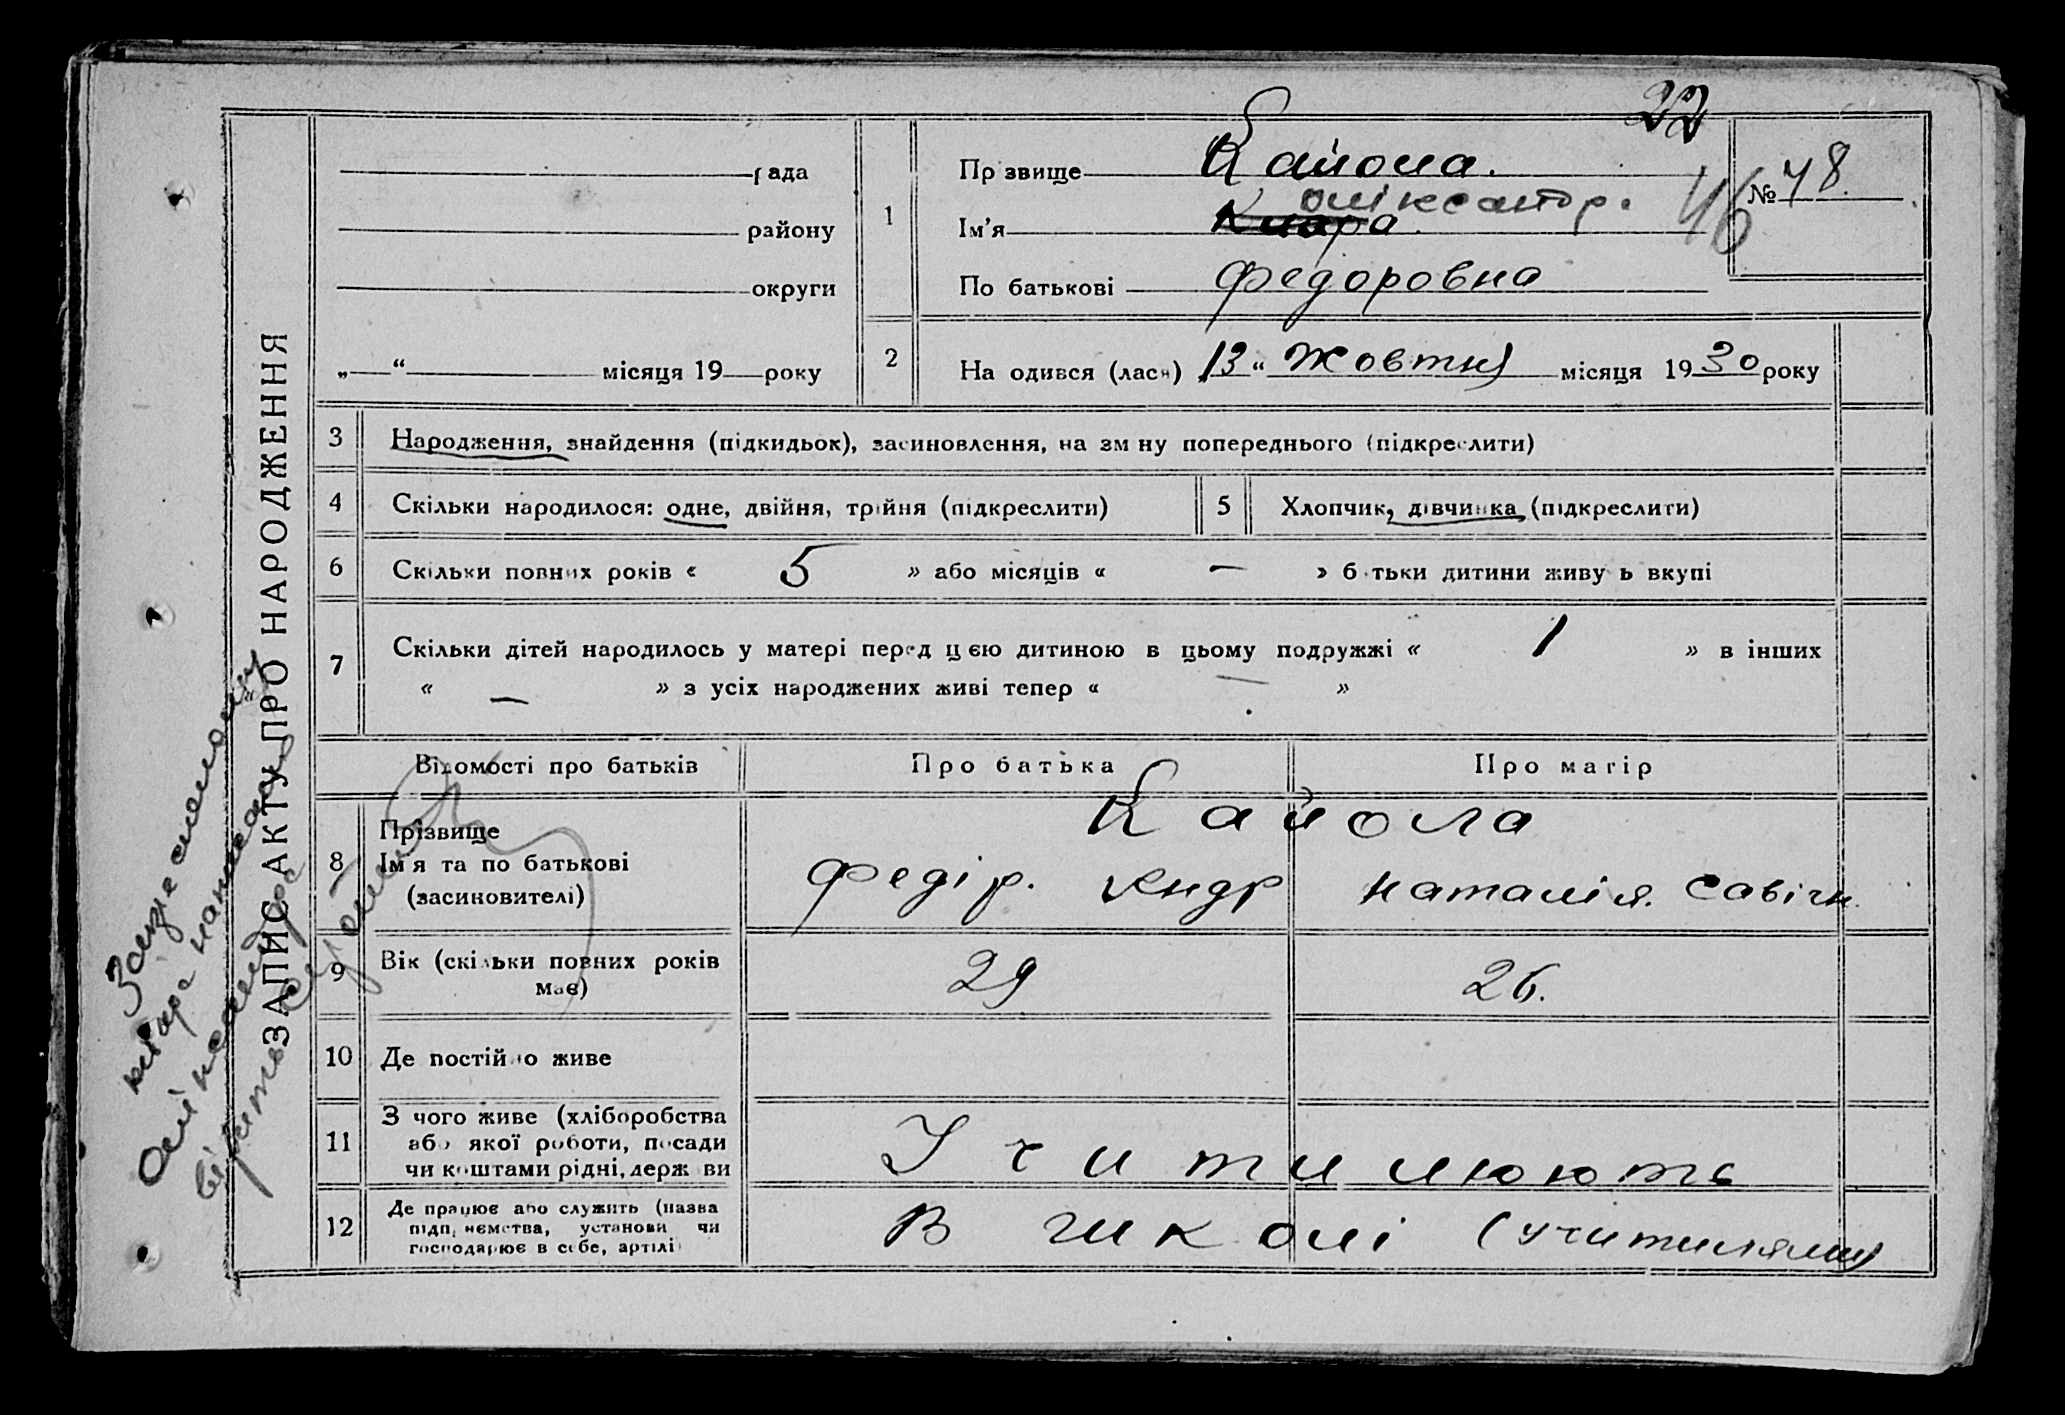 22
рада
району
округи
„ “ місяця 19 року
1
Прізвище Кайола.
Ім'я Клара Оліксантр.
По батькові Федоровна
№ 78.
46
2
Народився (лася) „13“ Жовтня місяця 1930 року
ЗАПИС АКТУ ПРО НАРОДЖЕННЯ
3 Народження, знайдення (підкидьок), засиновлення, на зміну попереднього (підкреслити)
4 Скільки народилося: одне, двійня, трійня (підкреслити)
5 Хлопчик, дівчинка (підкреслити)
6 Скільки повних років « 5 » або місяців « — » батьки дитини живуть вкупі
7 Скільки дітей народилось у матері перед цією дитиною в цьому подружжі « 1 » в інших
« — » з усіх народжених живі тепер « — »
Відомості про батьків Про батька Про матір
8 Прізвище
Ім'я та по батькові
(засиновителі)
Кайола
Федір. Андр Наталія. Савічн.
9 Вік (скільки повних років
має)
29 26.
10 Де постійно живе
11 З чого живе (хліборобства
або якої роботи, посади
чи коштами рідні, держави
Учителюють
12 Де працює або служить (назва
підприємства, установи чи
господарює в себе, артілі)
В школі (учителями)
Закреслиному
Клара написаному
Оліксандра
вірить